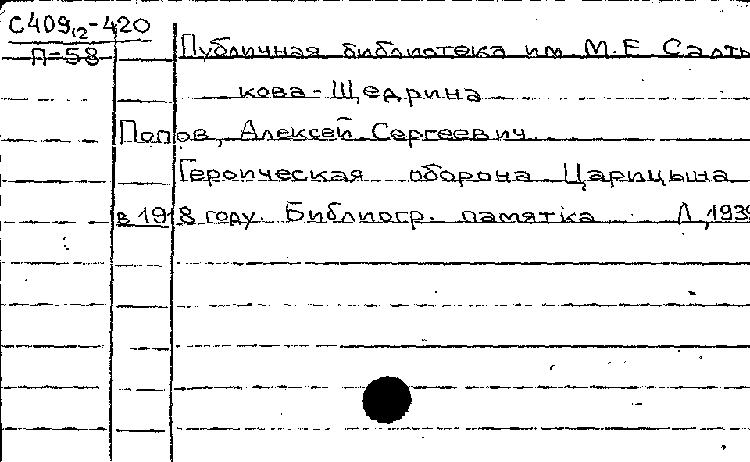 С40912-420
П-58
Публичная библиотека им М.Е Салты
кова-Щедрина
Попов, Алексей Сергеевич
Героическая оборона Царицына
в 1918 году. Библиогр. памятка Л,1939